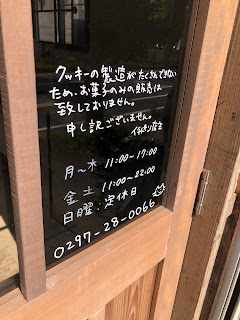 クッキーの製造がたくさんできない
ため、お菓子のみの販売は
致しておりません。
申し訳ございません。
月〜木 11:00〜17:00
金土 11:00〜22:00
日曜:定休日
0297-28-0066